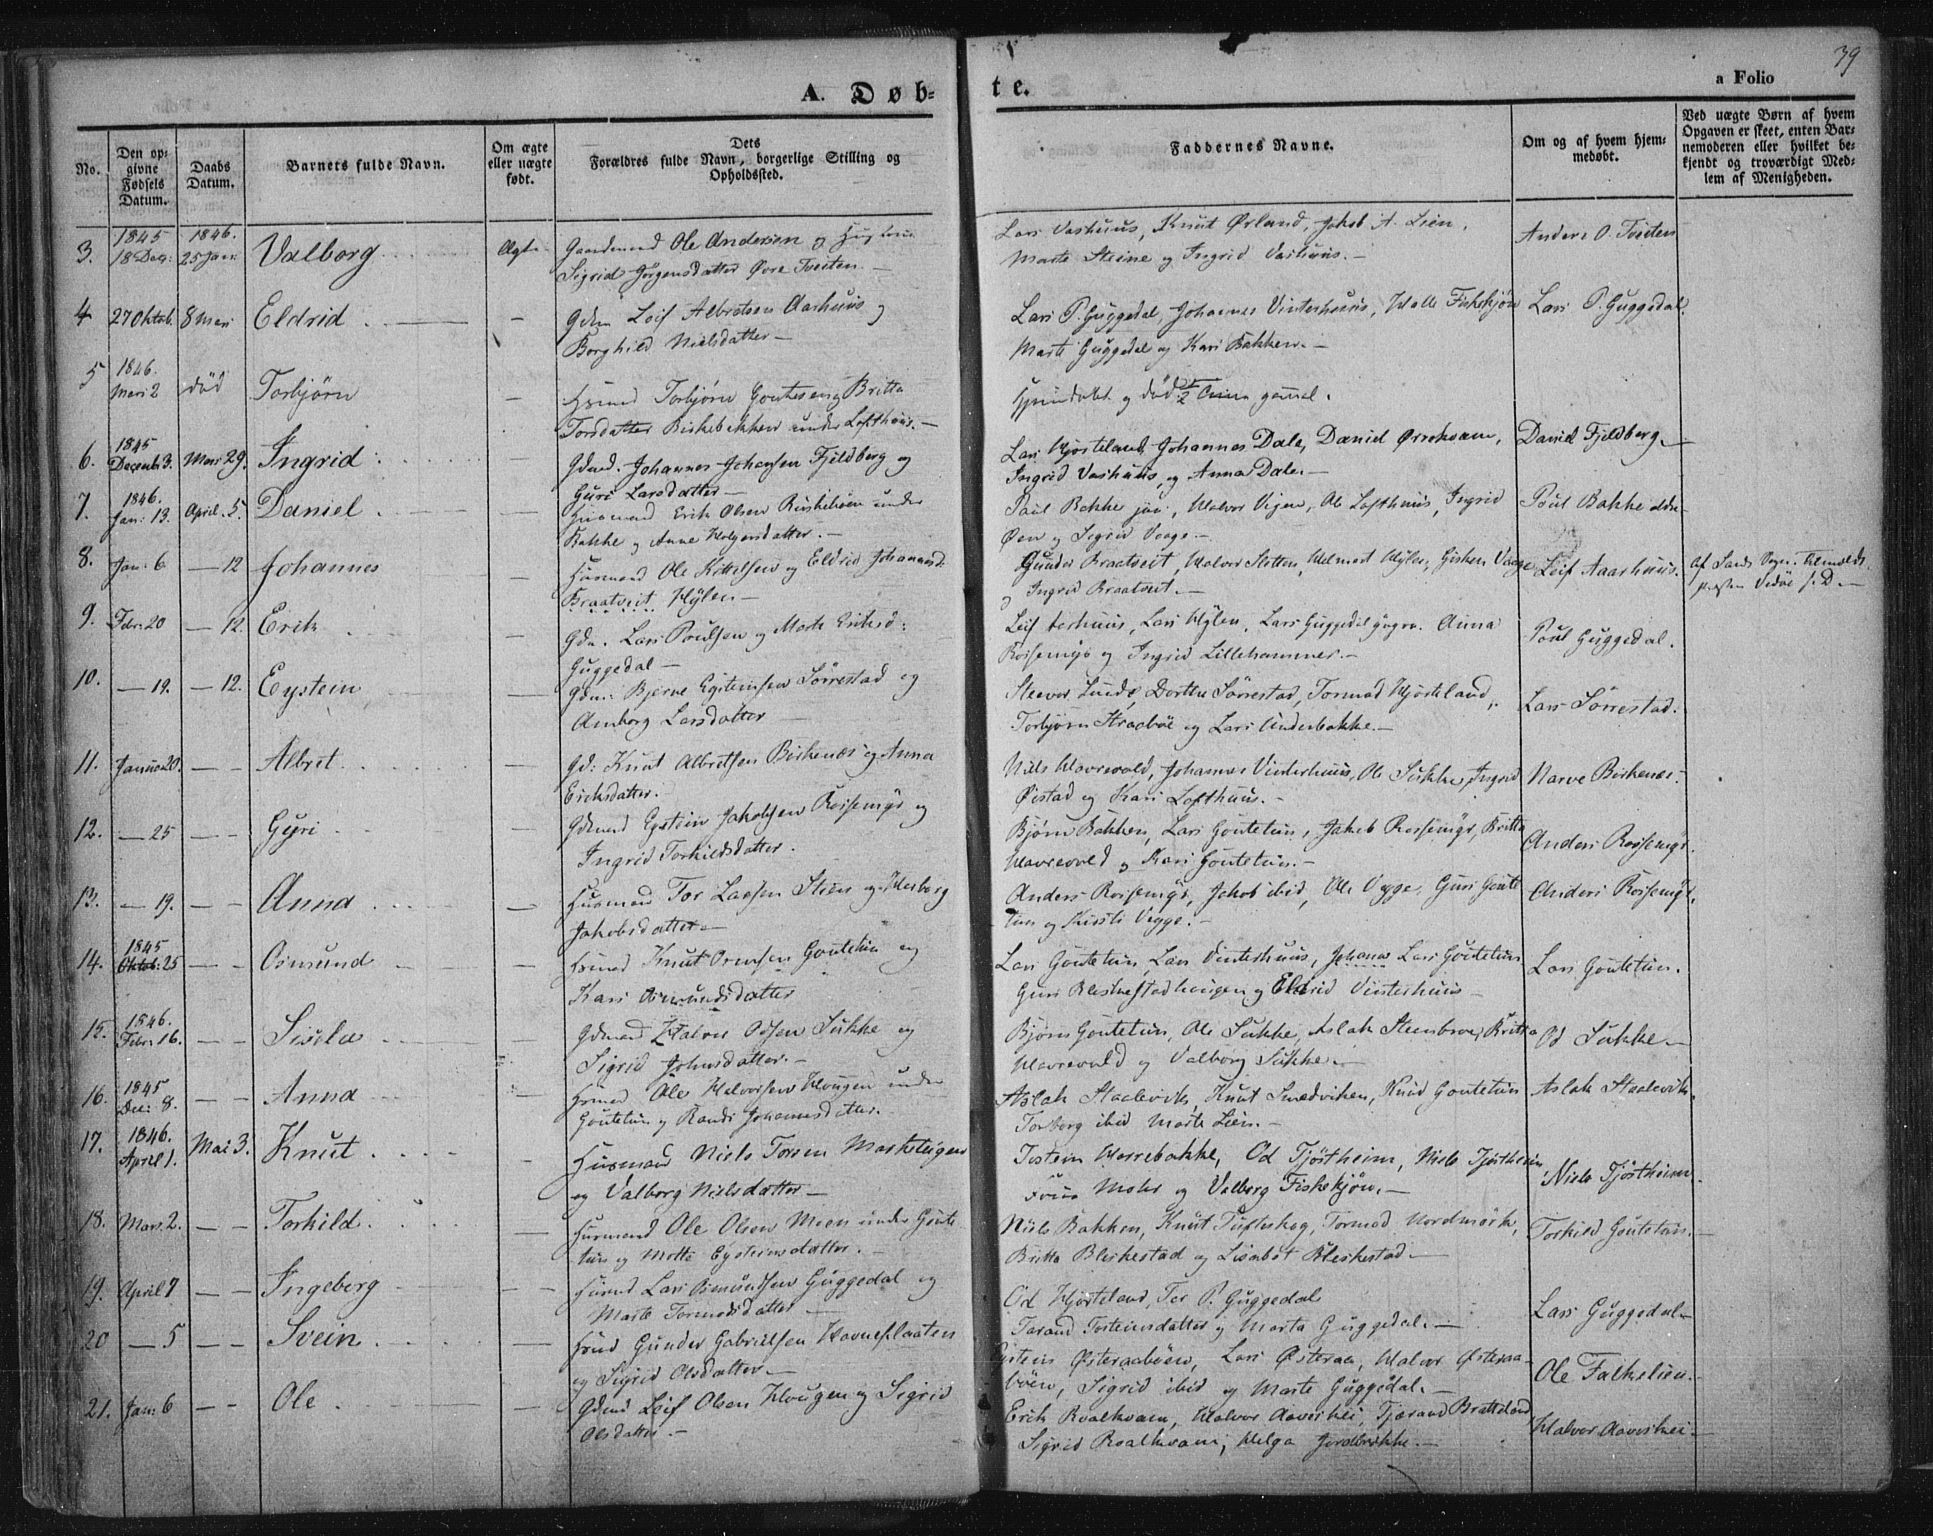 39
A. Døb-
te.
a Folio
No.
Den op-
givne
Fødsels
Datum.
Daabs
Datum.
Barnets fulde Navn.
Om ægte
eller uægte
født.
Dets
Forældres fulde Navn, borgerlige Stilling og
Opholdssted.
Faddernes Navne.
Om og af hvem hjem-
medøbt.
Ved uægte Børn af hvem
Opgaven er skeet, enten Bar-
nemoderen eller hvilket be-
kjendt og troværdigt Med-
lem af Menigheden.
3. 1845 18 Dec: 1846. 25 Jan: Valborg Ægte Gaardmand Ole Andersen og Hustru
Sigrid Jørgensdatter Øvre Tveiten.—
Lars Vashuus, Knut Ørland, Jakob A. Lien,
Marte Steine og Ingrid Vashuus.—
Anders O. Tveiten
4 27 Oktob. 8 Mars Eldrid — Gdm Leif Albretsen Aarhuus og
Borghild Nielsdatter—
Lars P. Guggedal, Johannes Vinterhuus, Halle Fiskekjøn
Marte Guggedal og Kari Bakken.—
Lars P. Guggedal.
5 1846. Mars 2 død Torbjørn — Hsmd Torbjørn Goutesen og Britta
Torsdatter Birkebakken under Lofthuus.—
Hjemdøbt og død gamel.
6. 1845 Decemb 3. Mars 29. Ingrid Gdmd. Johannes Johansen Fjeldberg og
Guri Larsdatter—
Lars Hjorteland, Johannes Dale, Daniel Ørrekvam,
Ingrid Vashuus, og Anna Dale.—
David Fjeldberg.
7. 1846. Jan: 13. April. 5. Daniel — Huusmand Erik Olsen under
Bakke og Anne Holgersdatter.—
Poul Bakke jun, Halvor Vigen, Ole Lofthuus, Ingrid
Øen og Sigrid Vaage—
Poul Bakke ældre
8. Jan: 6 — 12 Johannes — Huusmand Ole Kittelsen og Eldrid Johannesd:
Braatveit Hylen—
Gunder Braatveit, Halvor Sletten, Helmod Hylen, Gisken Vaage
og Ingrid Braatveit.—
Leif Aaarhuus.
Af Sands Sogn. tilmeldt
presten
9. Febr: 20 — 12. Erik — Gdm. Lars Poulsen og Marte Eriksd:
Guggedal—
Leif Aarhuus, Lars Hylen, Lars Guggedal yngre. Anna
Roisemyr og Ingrid Lillehammer.—
Poul Guggedal.
10. — 19. — 12. Eystein — Gdm: Bjerne Eysteinsen Sørrestad og
Amborg Larsdatter —
Steever Lunde, Dorthe Sørrestad, Tormod Hjorteland,
Torbjørn Straabøe og Lars Underbakke.—
Lars Sørrestad.
11. Januar 20. — — Albret — Gd: Knut Albretsen Birkenæs og Anna
Eriksdatter.
Niels Havrevold, Johannes Vinterhuus, Ole Sukke, Ingrid
Øistad og Kari Lofthuus.—
Narve Birkenes.
12. — 25 — — Gyri — Gdmand Eystein Jakobsen Roisemyr og
Ingrid Torkildsdatter.
Bjørn Bakken, Lars Goutetun, Jakob Roisemyr, Britta
Havrevold og Kari Goutetun.—
Anders Roisemyr.
13. — 19. — — Anna — Huusmand Tor Larsen Steine og Herborg
Jakobsdatter—
Anders Roisemyr, Jakob ibid, Ole Vegge, Guri Goute
tun og Kirsti Vegge.—
Anders Roisemyr.
14. 1845 Oktob: 25 — — Osmund — Hsmd Knut Ormsen Goutetun og
Kari Osmundsdatter
Lars Goutetun, Lars Vinterhuus, Johanes Lars Goutetun
Guri Bleskestadhougen og Eldrid Vinterhuus—
Lars Goutetun.
15. 1846. Febr: 16. — — Sisela — Gdmand Halvor Odsen Sukke og
Sigrid Johnsdatter.—
Bjørn Goutetun, Ole Sukke, Aslak Steenbroe, Britta
Havrevold og Valborg Sukke.—
Od Sukke—
16. 1845 Dec: 8. — — Anna — Hsmd Ole Halvorsen Hougen under
Goutetun og Randi Johannesdatter.
Aslak Staalevik, Knut Smedviken, Knud Goutetun
Torborg ibid Marte Lien.—
Aslak Staalevik.
17. 1846. April 1. Mai 3. Knut — Huusmand Niels Torsen Markstugen
og Valborg Nielsdatter—
Tostein Horrebakke, Od Tjøstheim, Niels Tjøstheim,
Mohr og Valborg Fiskekjøn.—
Niels Tjøstheim
18. Mars. 2. — — Torkild — Huusmand Ole Olsen Moen under Goute
tun og Marte Eysteinsdatter.—
Niels Bakken, Knut Tufteskog, Tormod Nordmork,
Britta Bleskestad og Lisabet Bleskestad—
Torkild Goutetun.—
19. April 7 — — Ingeborg — Huusmd Lars Osmundsen Guggedal og
Marte Tormodsdatter—
Od Hjorteland, Tor P. Guggedal
Tarand Torsteinsdatter og Marta Guggedal.—
Lars Guggedal—
20 — 5 — — Svein — Hsmd Gunder Gabrielsen Havneflaaten
og Sigrid Olsdatter—
Østein Østeraabøen, Lars Østeraa, Halvor Østeraa-
bøen, Sigrid ibid og Marte Guggedal.—
Ole Falkelien.—
21. Jan: 6 — — Ole — Gdmd Leif Olsen Hougen og Sigrid
Olsdatter.—
Erik Roalkvam, Halvor Aaveshei, Tjærand Bratteland
Sigrid Roalkvam, Helga Jordbrekke.—
Halvor Aaveshei—